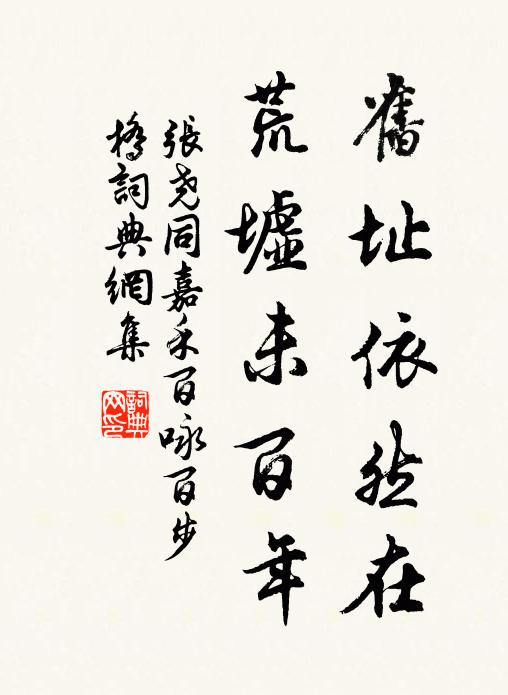 舊址依然在
荒墟未百年
張堯同嘉禾百咏百步
橋詞典網集
詞典
网印